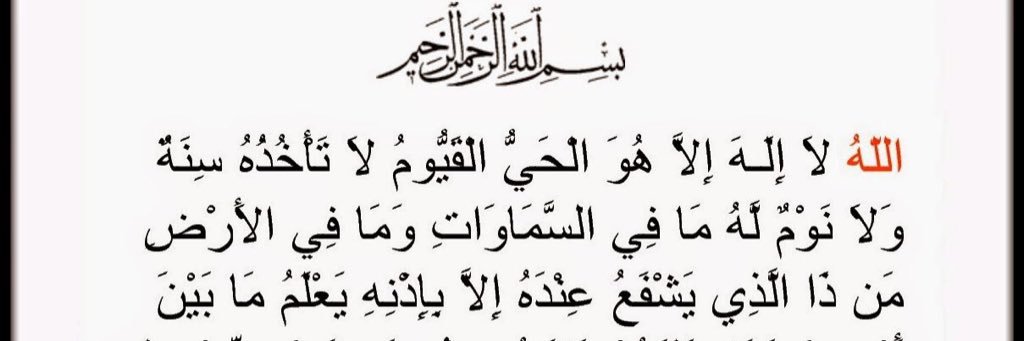 بِسْمِ اللَّهِ الرَّحْمَنِ الرَّحِيمِ
اللّهُ لاَ إِلَـهَ إِلاَّ هُوَ الْحَيُّ الْقَيُّومُ لاَ تَأْخُذُهُ سِنَةٌ
وَلاَ نَوْمٌ لَّهُ مَا فِي السَّمَاوَاتِ وَمَا فِي الأَرْضِ
مَن ذَا الَّذِي يَشْفَعُ عِنْدَهُ إِلاَّ بِإِذْنِهِ يَعْلَمُ مَا بَيْنَ